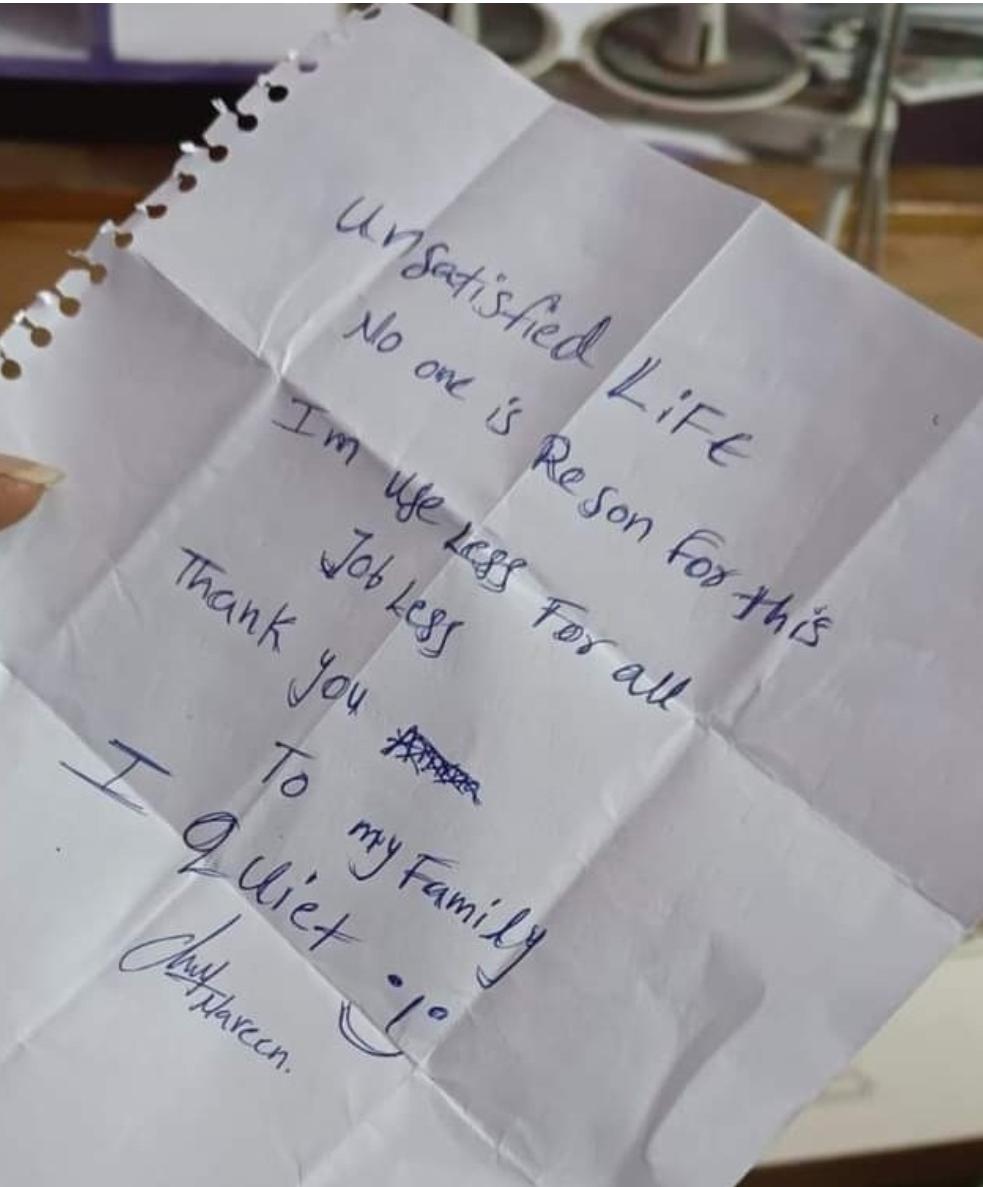 unsatisfied LiFE
No one is Reson For this
Im useLess For all
JobLess
Thank you
To my Family
I Quiet